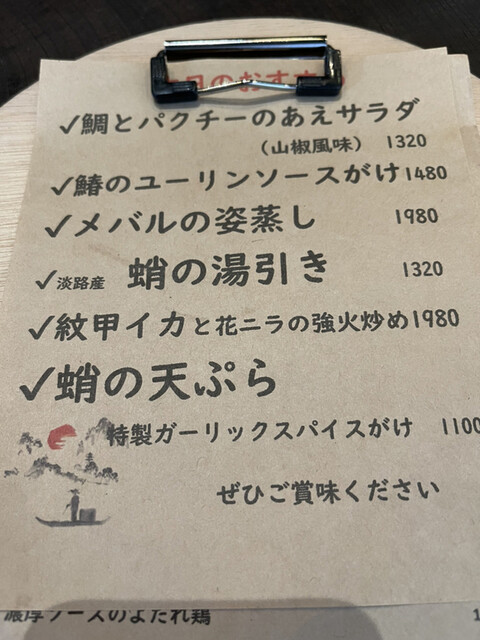 のおすすめ
✓鯛とパクチーのあえサラダ
(山椒風味) 1320
✓鰆のユーリンソースがけ1480
✓メバルの姿蒸し 1980
✓淡路産 蛸の湯引き 1320
✓紋甲イカと花ニラの強火炒め1980
✓蛸の天ぷら
特製ガーリックスパイスがけ 1100
ぜひご賞味ください
濃厚ソースのよだれ鶏